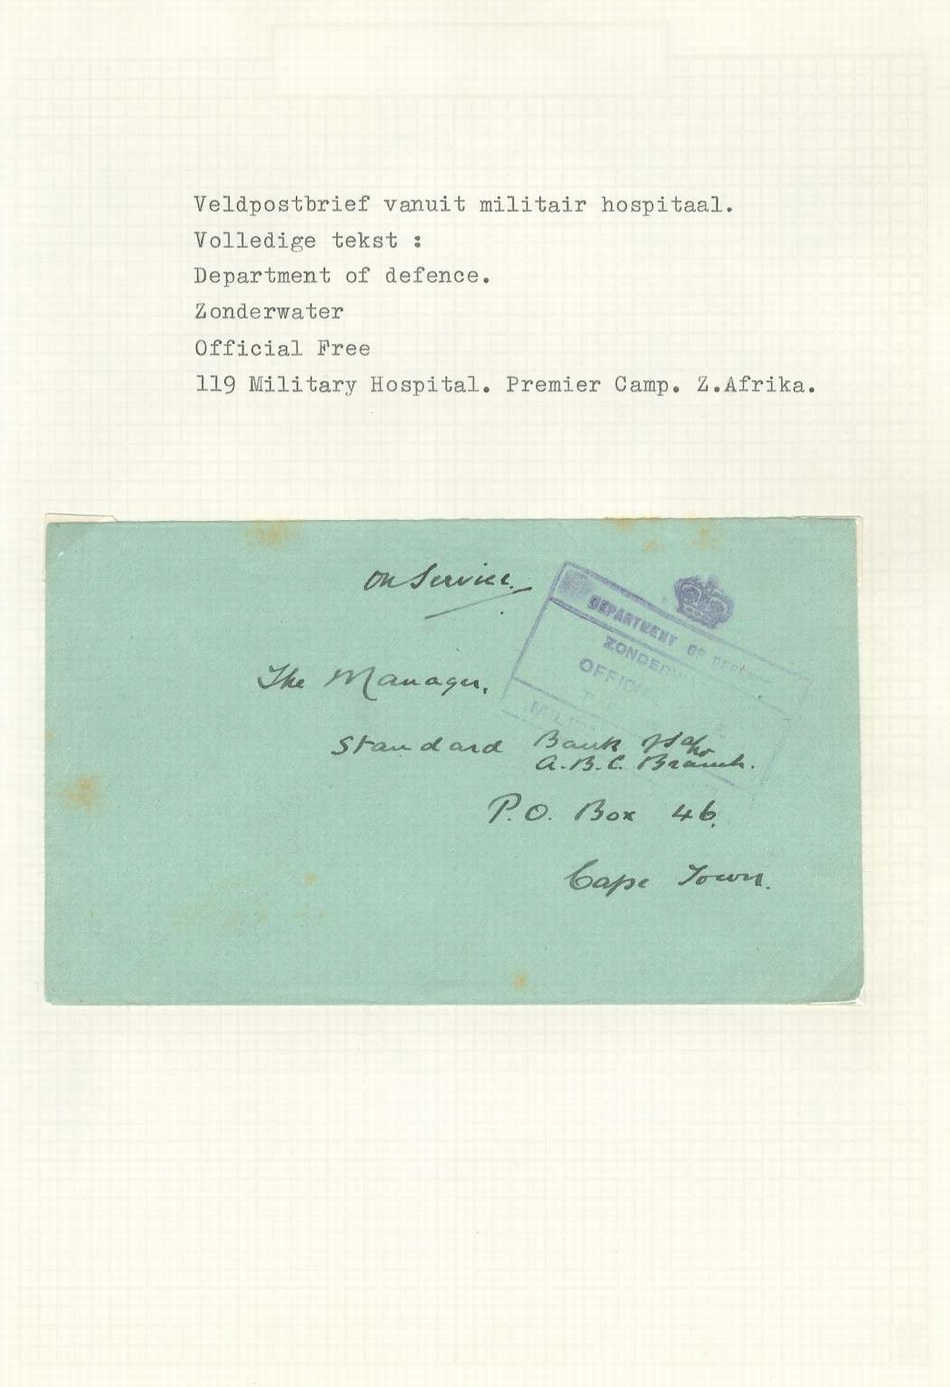 Veldpostbrief vanuit militair hospitaal.
Volledige tekst :
Department of defence.
Zonderwater
Official Free
119 Military Hospital. Premier Camp. Z.Afrika.
On Service.
DEPARTMENT OF DEFENCE
ZONDER
OFFICI
The Manager,
Standard Bank of
A.B.C. Branch.
P.O. Box 46.
Cape Town.